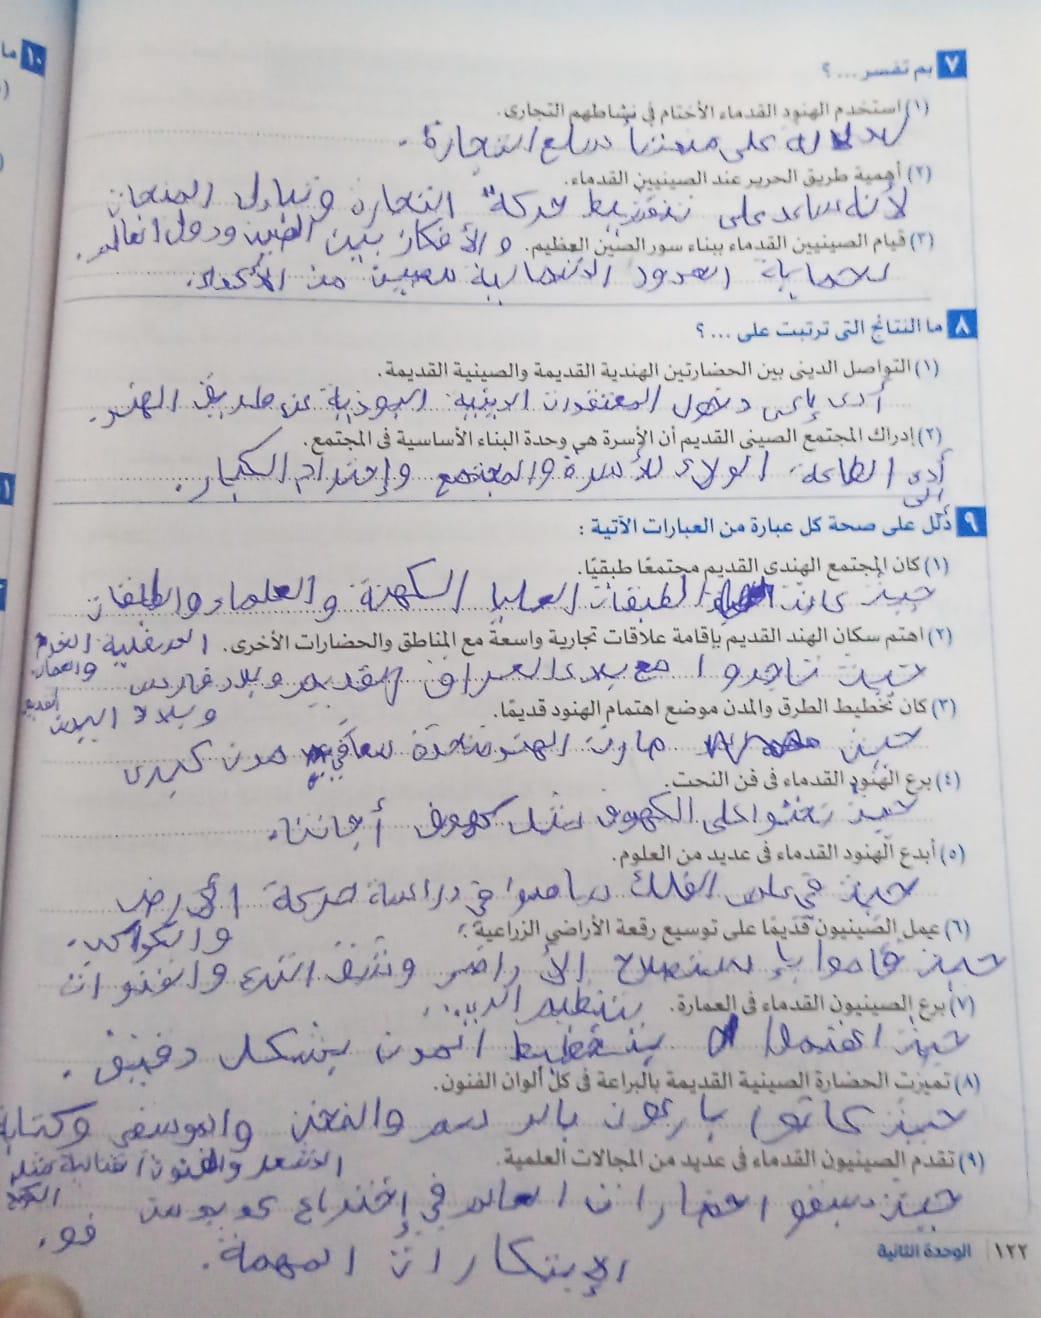 ١٠ ما
٧ بم تفسر ... ؟
(١) استخدم الهنود القدماء الأختام فى نشاطهم التجارى.
للدلالة على سلع التجارة.
(٢) أهمية طريق الحرير عند الصينيين القدماء.
لأنه ساعد على تنشيط حركة التجارة وتبادل المنتجات
والأفكار بين الصين ودول العالم.
(٣) قيام الصينيين القدماء ببناء سور الصين العظيم.
لحماية الحدود الشمالية للصين من الأعداء.
٨ ما النتائج التى ترتبت على ... ؟
(١) التواصل الدينى بين الحضارتين الهندية القديمة والصينية القديمة.
أدى إلى دخول المعتقدات الدينية البوذية عن طريق الهند.
(٢) إدراك المجتمع الصينى القديم أن الأسرة هى وحدة البناء الأساسية فى المجتمع.
أدى إلى الطاعة الولاء للأسرة والمجتمع وإحترام الكبار.
٩ دلل على صحة كل عبارة من العبارات الآتية :
(١) كان المجتمع الهندى القديم مجتمعًا طبقيًا.
حيث كانت الطبقات العليا الكهنة والعلماء والطبقات
(٢) اهتم سكان الهند القديم بإقامة علاقات تجارية واسعة مع المناطق والحضارات الأخرى.
حيث تاجروا مع بلاد العراق القديم وبلاد فارس
وبلاد اليونان
(٣) كان تخطيط الطرق والمدن موضع اهتمام الهنود قديمًا.
حيث مدن كبرى
(٤) برع الهنود القدماء فى فن النحت.
حيث نحتوا على الكهوف مثل كهوف أجانتا.
(٥) أبدع الهنود القدماء فى عديد من العلوم.
حيث فى علم الفلك ساهموا فى دراسة حركة الأرض
والكواكب.
(٦) عمل الصينيون قديمًا على توسيع رقعة الأراضي الزراعية.
حيث قاموا بإستصلاح الأراضى وشق الترع والقنوات
(٧) برع الصينيون القدماء فى العمارة.
حيث اهتموا بتخطيط المدن بشكل دقيق.
(٨) تميزت الحضارة الصينية القديمة بالبراعة فى كل ألوان الفنون.
حيث كانوا بارعون بالرسم والنحت والموسقى وكتابة
الشعر والفنون القتالية مثل الكونج
فو.
(٩) تقدم الصينيون القدماء فى عديد من المجالات العلمية.
حيث سبقو حضارات العالم فى إختراع
الإبتكارات المهمة.
١٢٢ | الوحدة الثانية